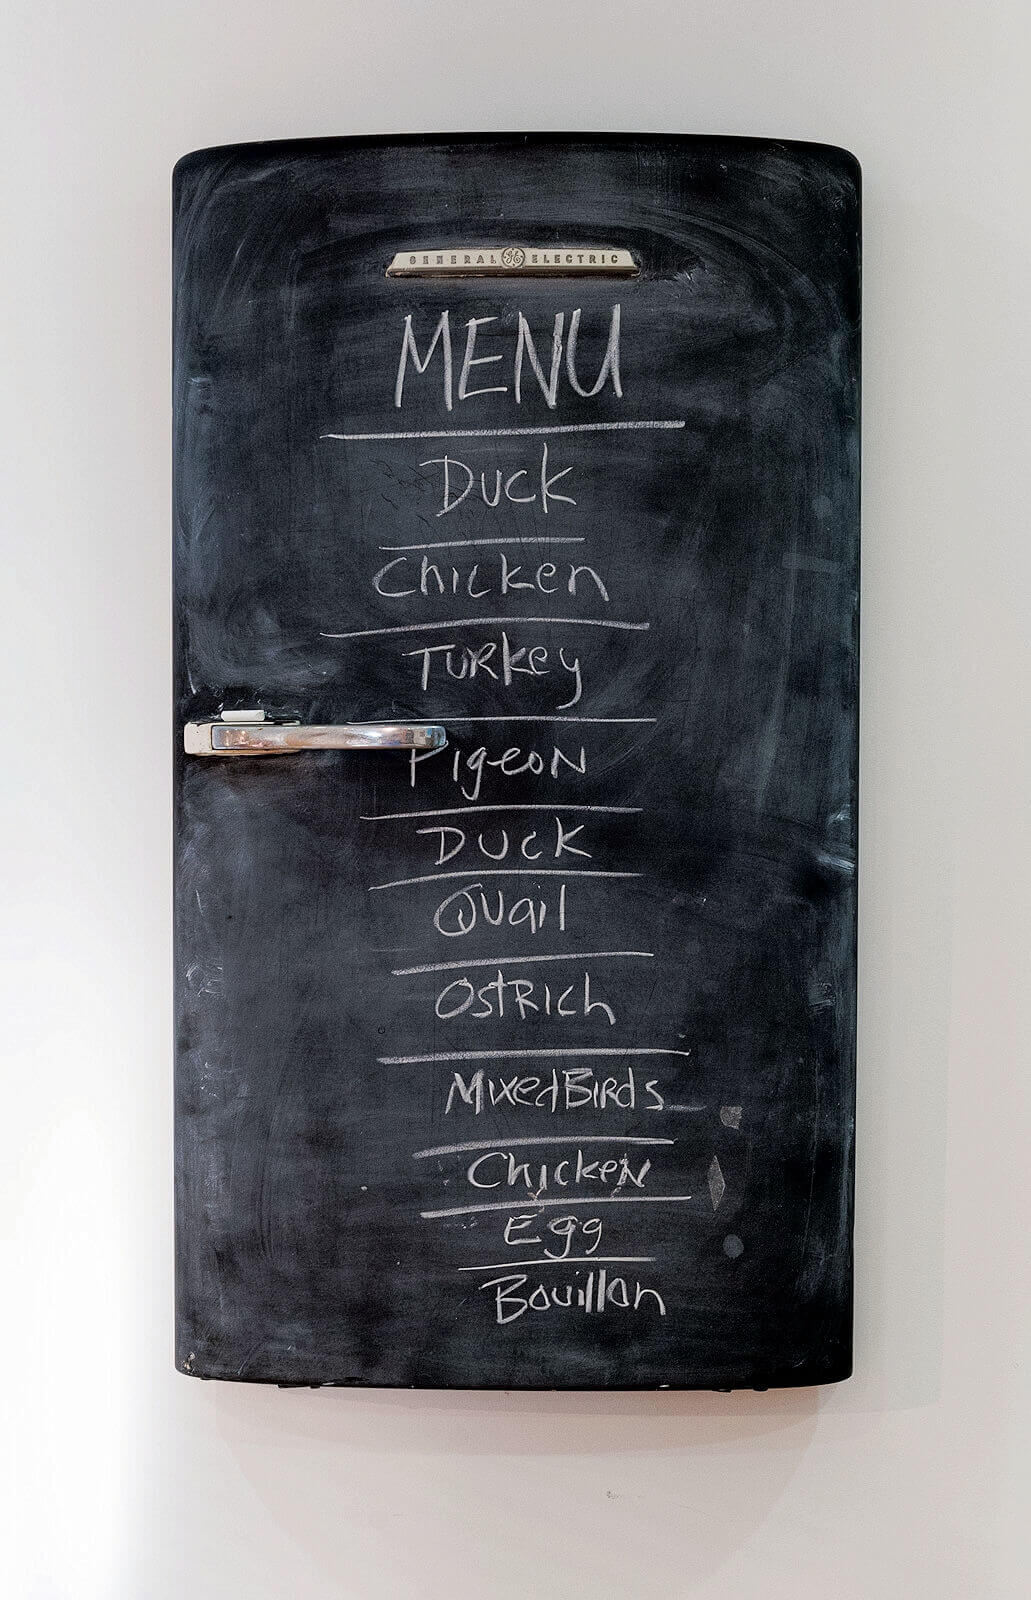 GENERAL GE ELECTRIC
MENU
Duck
Chicken
Turkey
Pigeon
Duck
Quail
Ostrich
Mixed Birds
Chicken
Egg
Bouillon